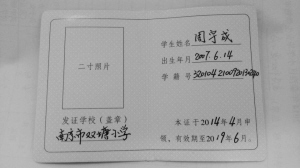 二寸照片
学生姓名 周宇成
出生年月 2007.6.14
学籍号
发证学校（盖章）
南京市双塘小学
本证于2014年4月申
领，有效期至2019年6月。